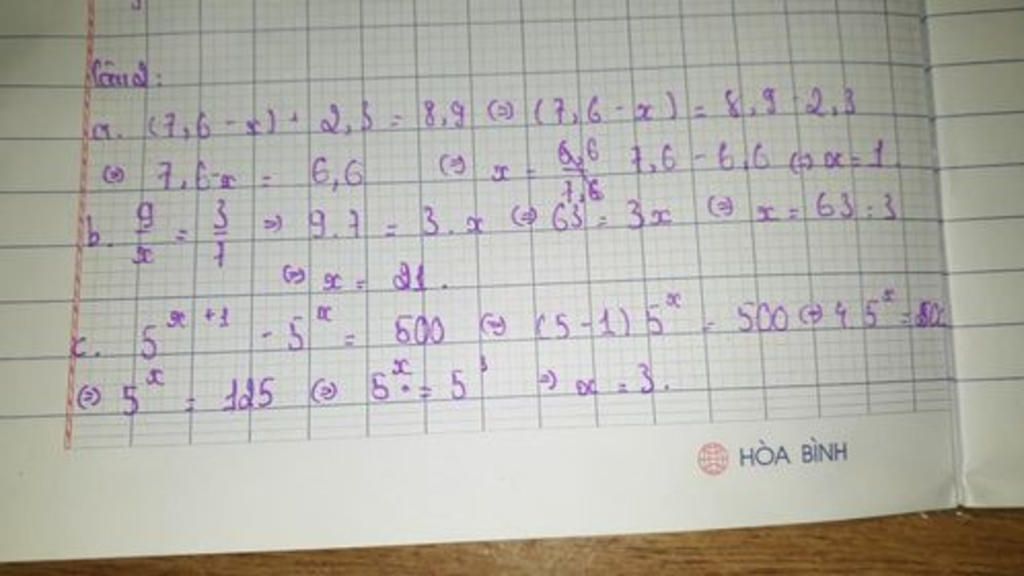 Câu 2:
a. (7,6 - x) + 2,3 = 8,9 (=) (7,6 - x) = 8,9 - 2,3
(=) 7,6 - x = 6,6 (=) x = 7,6 - 6,6 (=) x = 1
b. 9/x = 3/7 => 9.7 = 3.x (=) 63 = 3x (=) x = 63:3
(=) x = 21.
c. 5^(x+1) - 5^x = 500 (=) (5-1) 5^x = 500 (=) 4 5^x =
(=) 5^x = 125 (=) 5^x = 5^3 => x = 3.
HÒA BÌNH